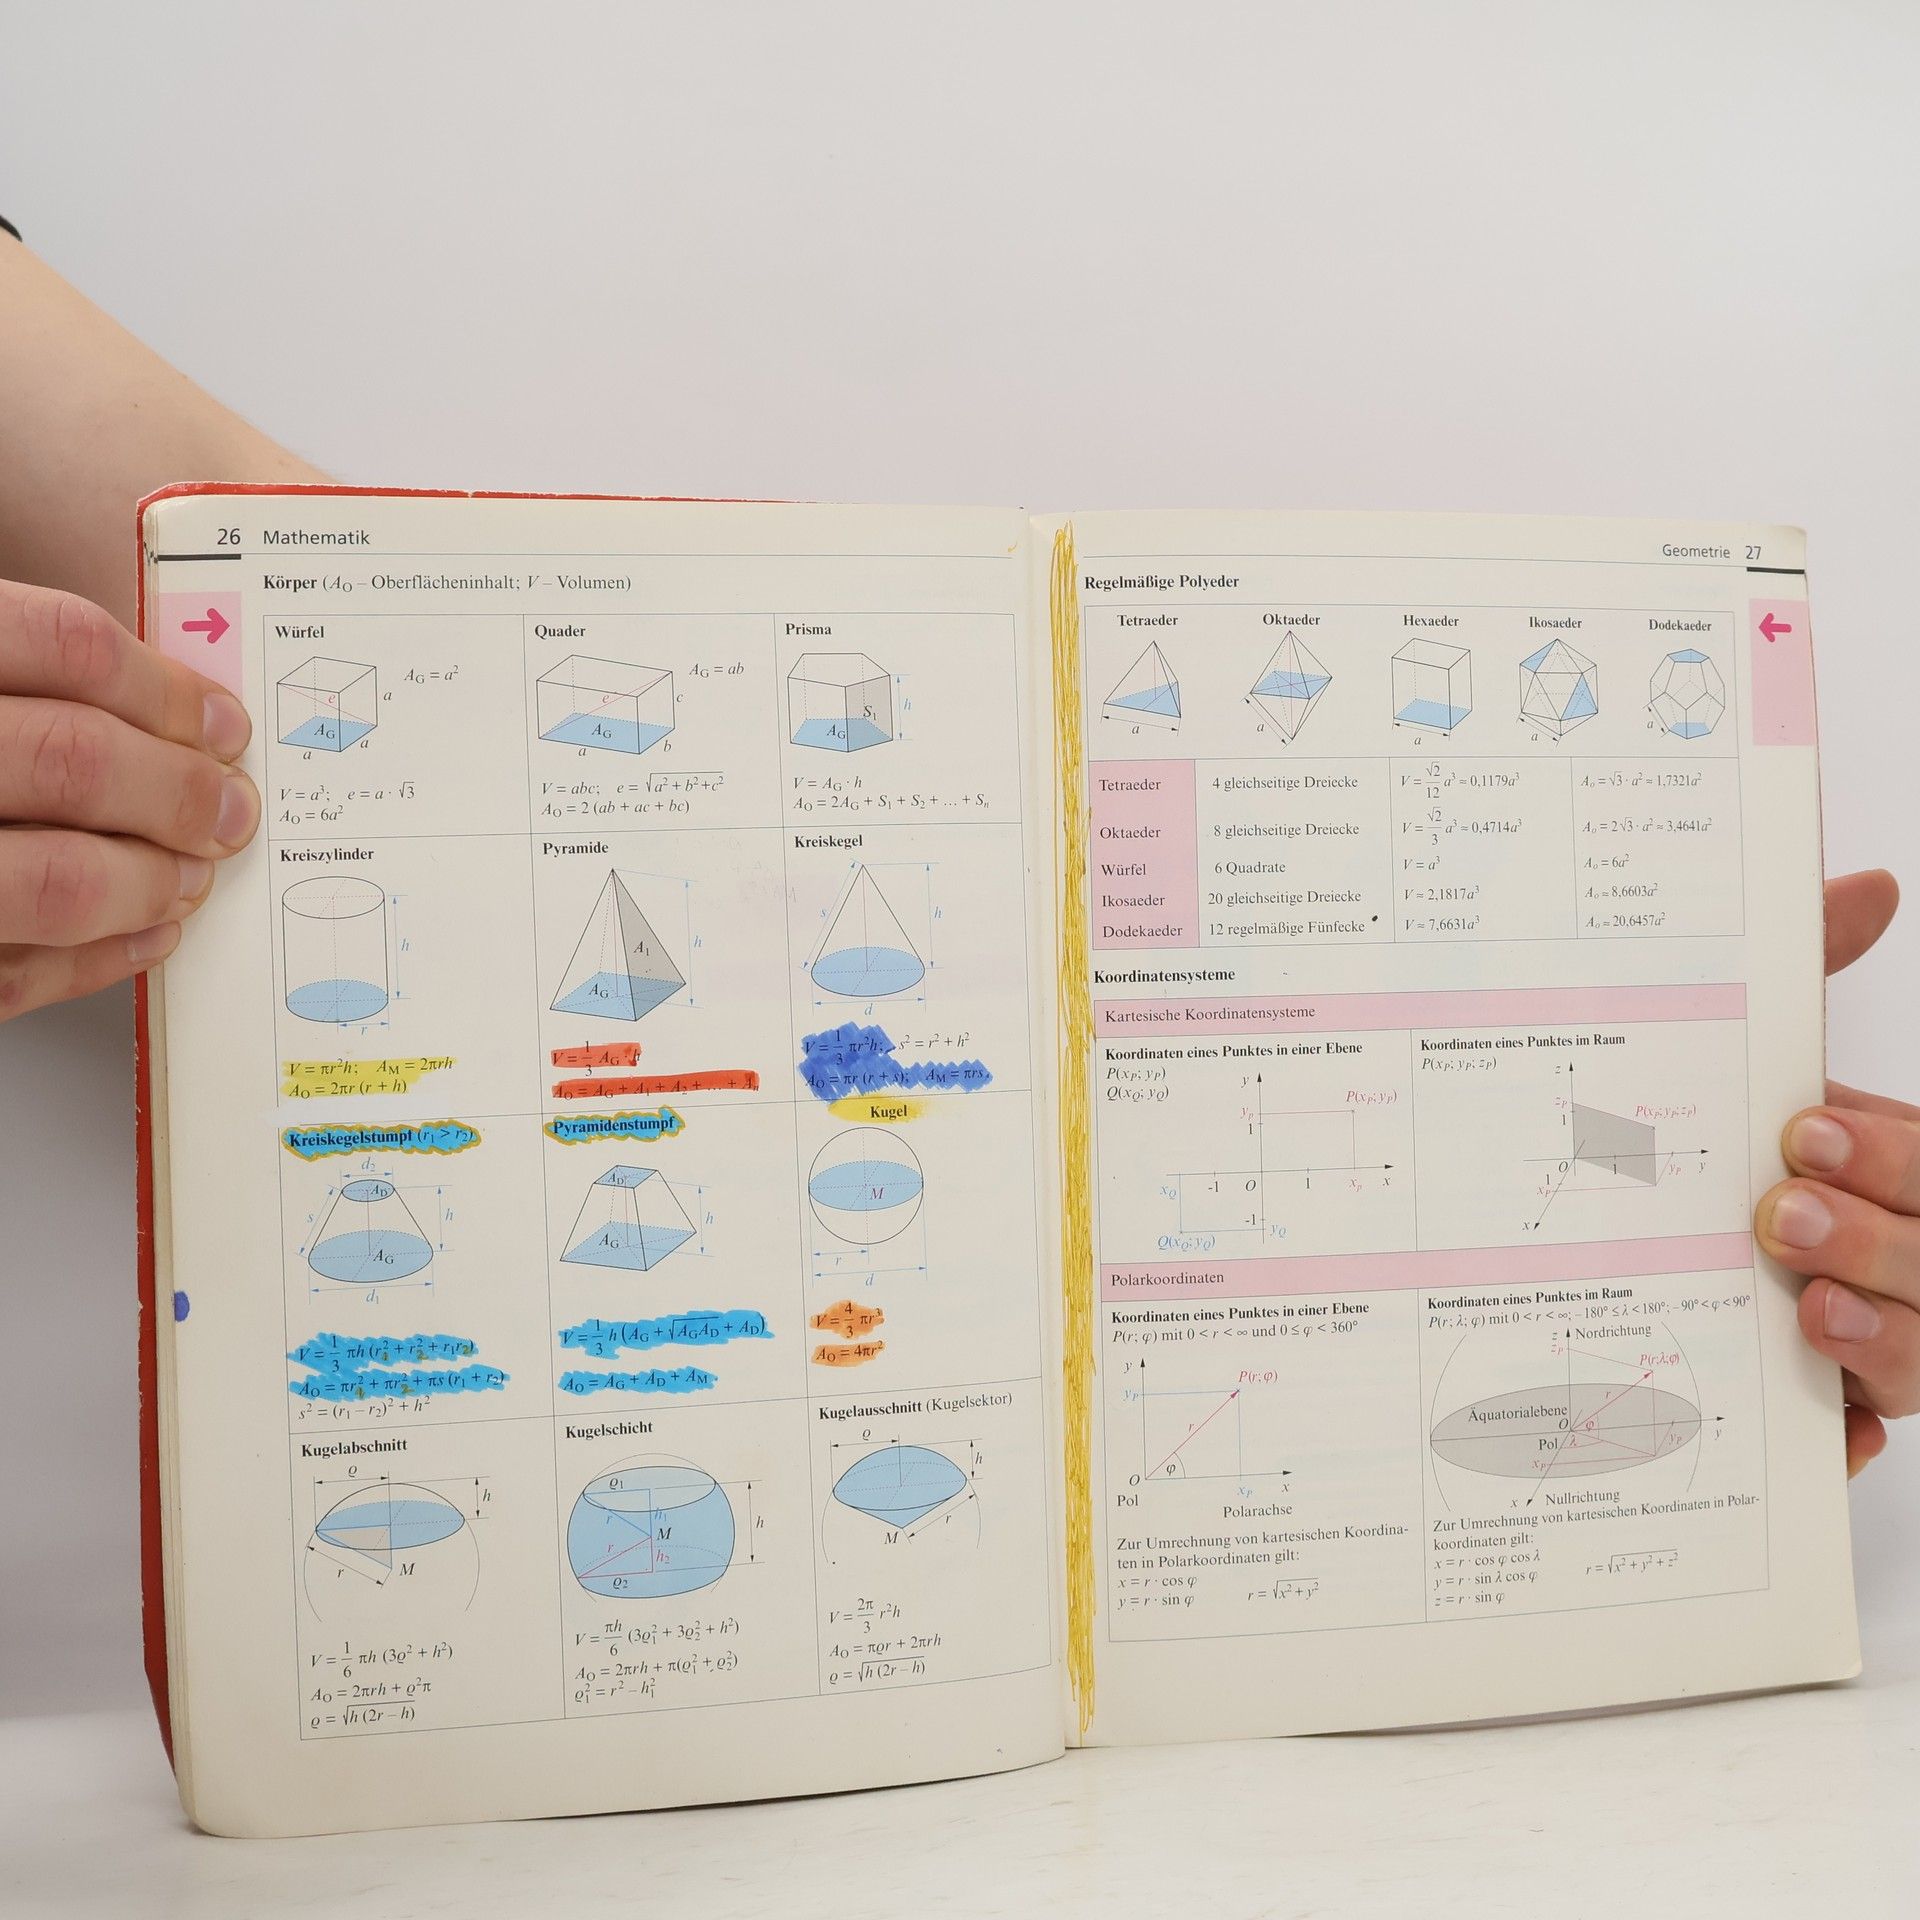 26 Mathematik
Körper (A_O – Oberflächeninhalt; V – Volumen)
Würfel
A_G = a²
e
a
A_G
a
a
V = a³; e = a · √3
A_O = 6a²
Quader
A_G = ab
e
c
A_G
a
b
V = abc; e = √(a² + b² + c²)
A_O = 2 (ab + ac + bc)
Prisma
h
S₁
A_G
V = A_G · h
A_O = 2A_G + S₁ + S₂ + … + Sₙ
Kreiszylinder
h
r
V = πr²h; A_M = 2πrh
A_O = 2πr (r + h)
Pyramide
A₁
h
A_G
V = 1/3 A_G · h
A_O = A_G + A₁ + A₂ + … + Aₙ
Kreiskegel
s
h
d
V = 1/3 πr²h; s² = r² + h²
A_O = πr (r + s); A_M = πrs
Kreiskegelstumpf (r₁ > r₂)
d₂
A_D
s
h
A_G
d₁
V = 1/3 πh (r₁² + r₂² + r₁r₂)
A_O = πr₁² + πr₂² + πs (r₁ + r₂)
s² = (r₁ – r₂)² + h²
Pyramidenstumpf
A_D
h
A_G
V = 1/3 h (A_G + √(A_G A_D) + A_D)
A_O = A_G + A_D + A_M
Kugel
M
r
d
V = 4/3 πr³
A_O = 4πr²
Kugelabschnitt
ϱ
h
r
M
V = 1/6 πh (3ϱ² + h²)
A_O = 2πrh + ϱ²π
ϱ = √(h (2r – h))
Kugelschicht
ϱ₁
r
h₁
M
h
r
h₂
ϱ₂
V = πh/6 (3ϱ₁² + 3ϱ₂² + h²)
A_O = 2πrh + π(ϱ₁² + ϱ₂²)
ϱ₁² = r² – h₁²
Kugelausschnitt (Kugelsektor)
ϱ
h
M
r
V = 2π/3 r²h
A_O = πϱr + 2πrh
ϱ = √(h (2r – h))
Geometrie 27
Regelmäßige Polyeder
Tetraeder Oktaeder Hexaeder Ikosaeder Dodekaeder
a a a a a
Tetraeder 4 gleichseitige Dreiecke V = √2/12 a³ ≈ 0,1179a³ A_O = √3 · a² ≈ 1,7321a²
Oktaeder 8 gleichseitige Dreiecke V = √2/3 a³ ≈ 0,4714a³ A_O = 2√3 · a² ≈ 3,4641a²
Würfel 6 Quadrate V = a³ A_O = 6a²
Ikosaeder 20 gleichseitige Dreiecke V ≈ 2,1817a³ A_O ≈ 8,6603a²
Dodekaeder 12 regelmäßige Fünfecke V ≈ 7,6631a³ A_O ≈ 20,6457a²
Koordinatensysteme
Kartesische Koordinatensysteme
Koordinaten eines Punktes in einer Ebene
P(x_P; y_P)
Q(x_Q; y_Q)
y
y_P
P(x_P; y_P)
1
x_Q -1 O 1 x_P x
-1
y_Q
Q(x_Q; y_Q)
Koordinaten eines Punktes im Raum
P(x_P; y_P; z_P)
z
z_P
P(x_P; y_P; z_P)
1
O
1
y_P
y
1
x_P
x
Polarkoordinaten
Koordinaten eines Punktes in einer Ebene
P(r; φ) mit 0 < r < ∞ und 0 ≤ φ < 360°
y
y_P
P(r; φ)
r
φ
O
x_P
x
Pol
Polarachse
Zur Umrechnung von kartesischen Koordina-
ten in Polarkoordinaten gilt:
x = r · cos φ
y = r · sin φ r = √(x² + y²)
Koordinaten eines Punktes im Raum
P(r; λ; φ) mit 0 < r < ∞; –180° ≤ λ < 180°; –90° < φ < 90°
z Nordrichtung
z_P
P(r;λ;φ)
r
Äquatorialebene
O
φ
y
Pol
λ
y_P
x_P
x Nullrichtung
Zur Umrechnung von kartesischen Koordinaten in Polar-
koordinaten gilt:
x = r · cos φ cos λ
y = r · sin λ cos φ r = √(x² + y² + z²)
z = r · sin φ